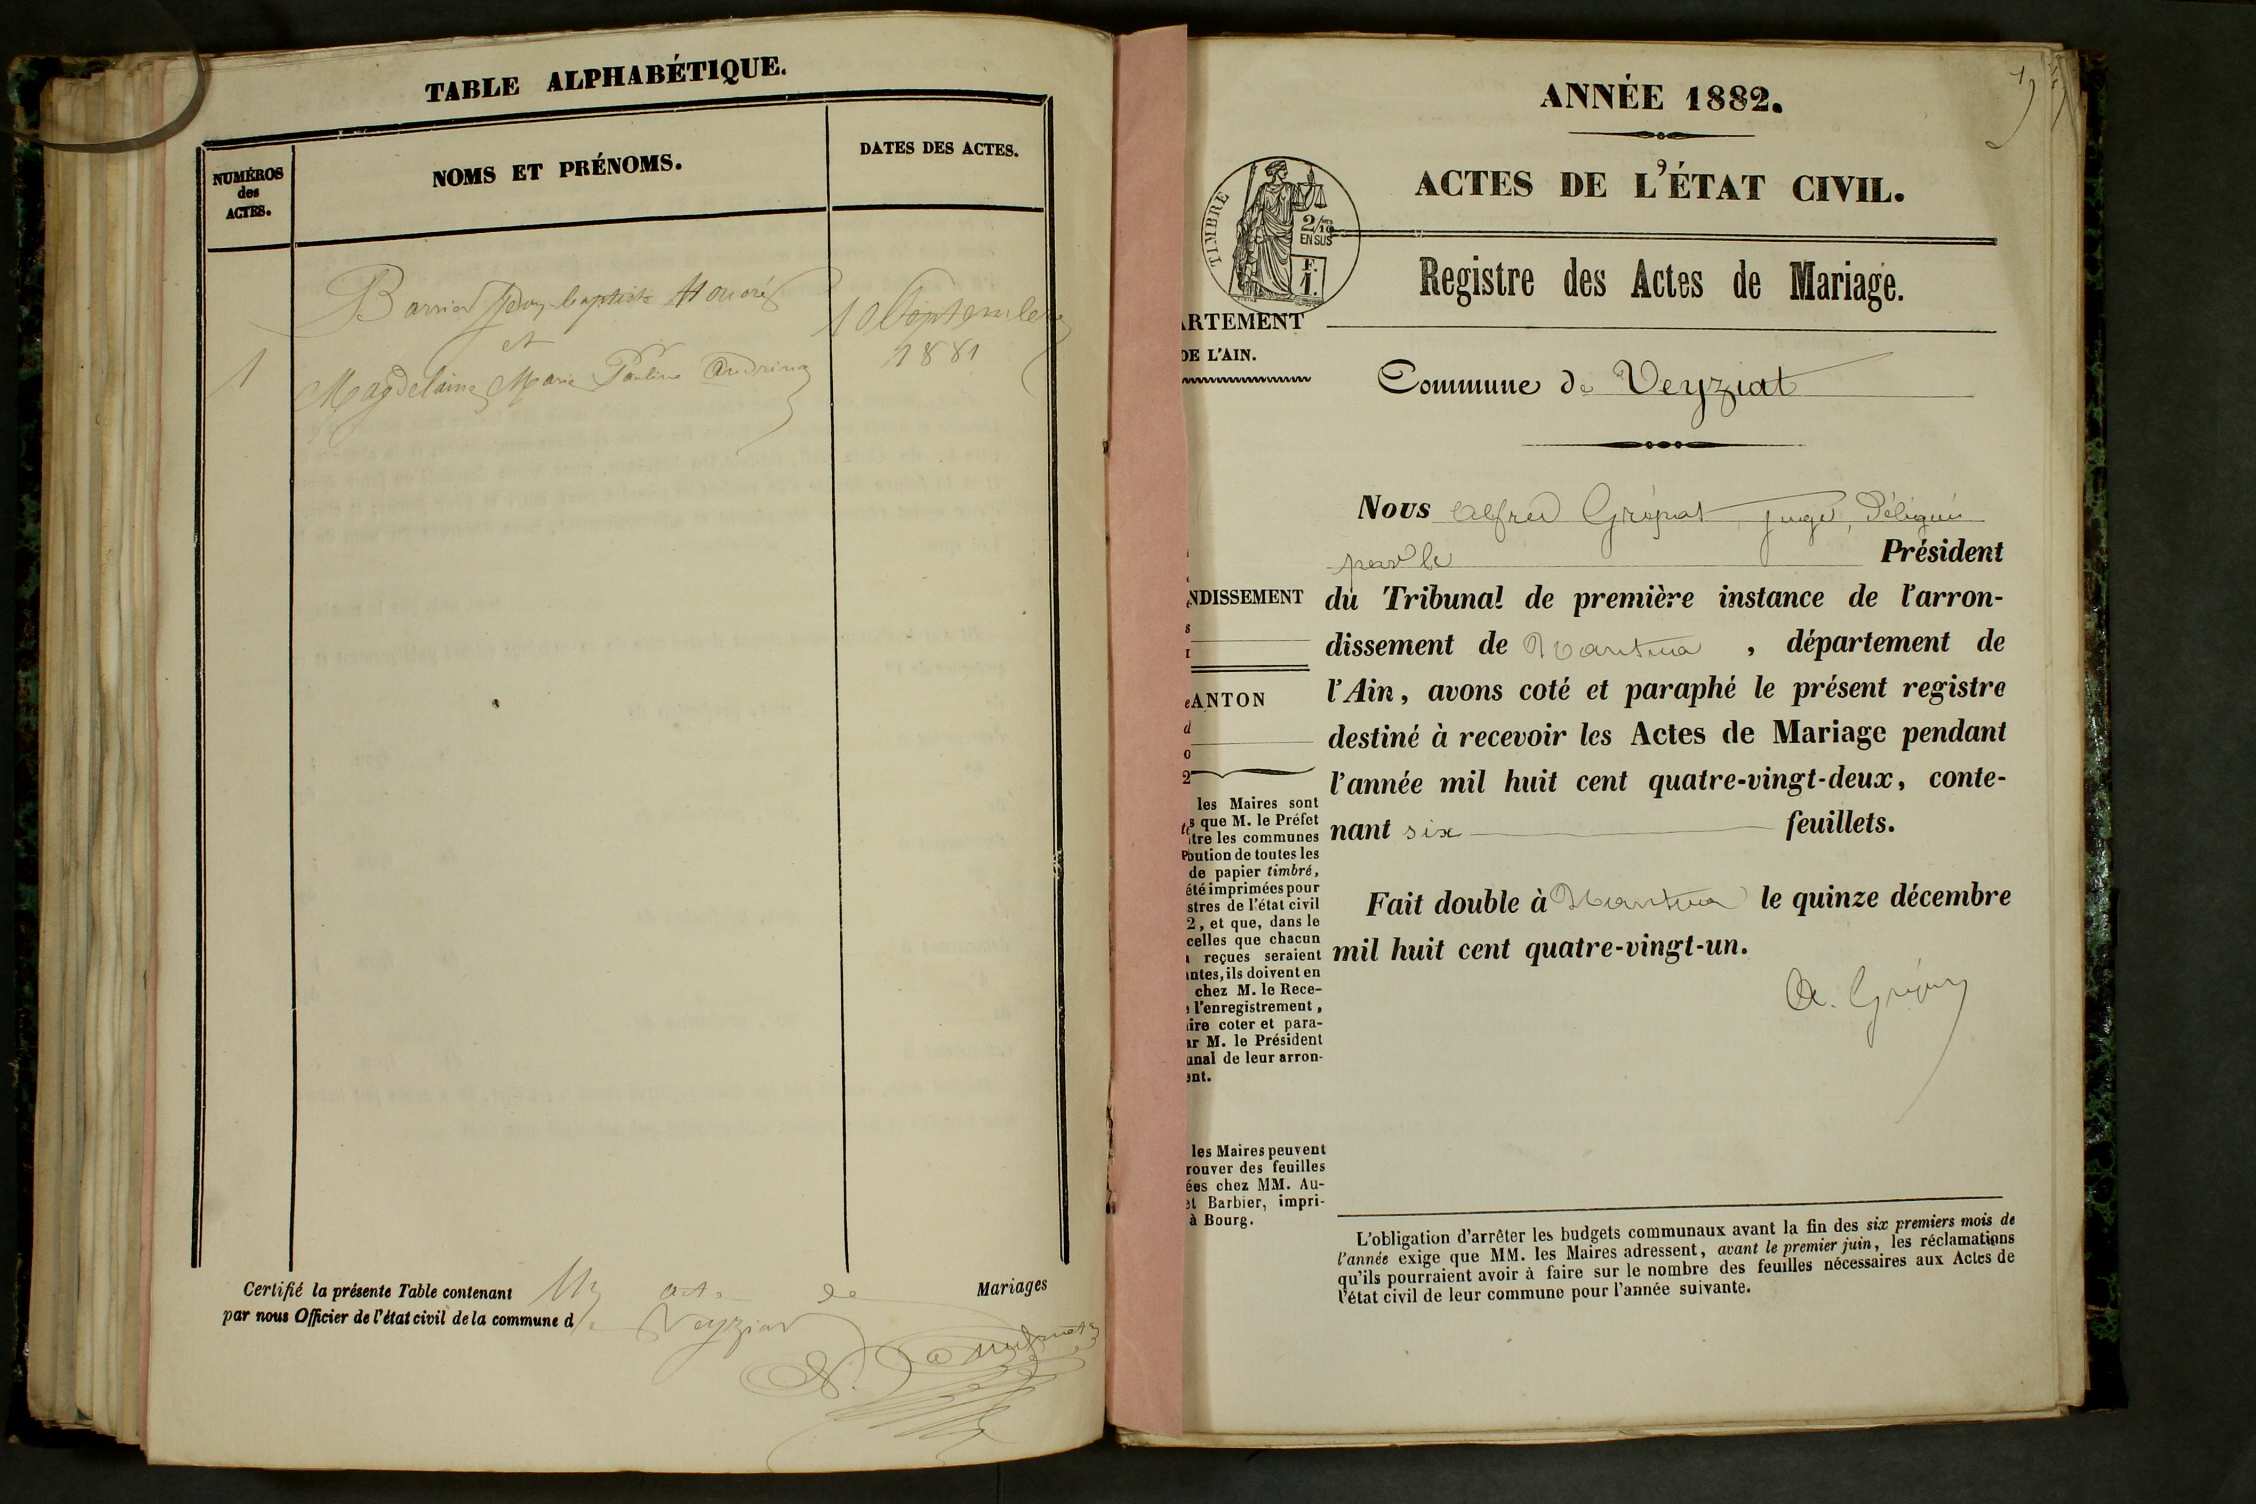 TABLE ALPHABÉTIQUE.
NUMÉROS
des
ACTES.
NOMS ET PRÉNOMS.
DATES DES ACTES.
Barrier Jean baptiste Honoré
et
1
Magdelaine Marie Pauline
10 Septembre
1881
Certifié la présente Table contenant Un acte de Mariages
par nous Officier de l'état civil de la commune de Veyziat
ANNÉE 1882.
ACTES DE L'ÉTAT CIVIL.
TIMBRE
2/10
EN SUS
F.
1.
Registre des Actes de Mariage.
ARTEMENT
DE L'AIN.
Commune de Veyziat
Nous Alfred juge, Délégué
par le Président
du Tribunal de première instance de l'arron-
dissement de Nantua, département de
l'Ain, avons coté et paraphé le présent registre
destiné à recevoir les Actes de Mariage pendant
l'année mil huit cent quatre-vingt-deux, conte-
nant six feuillets.
Fait double à Nantua le quinze décembre
mil huit cent quatre-vingt-un.
NDISSEMENT
ANTON
les Maires sont
s que M. le Préfet
tre les communes
bution de toutes les
de papier timbré,
été imprimées pour
stres de l'état civil
2, et que, dans le
celles que chacun
reçues seraient
antes, ils doivent en
chez M. le Rece-
l'enregistrement,
ire coter et para-
ar M. le Président
unal de leur arron-
ent.
les Maires peuvent
rouver des feuilles
ées chez MM. Au-
et Barbier, impri-
à Bourg.
L'obligation d'arrêter les budgets communaux avant la fin des six premiers mois de
l'année exige que MM. les Maires adressent, avant le premier juin, les réclamations
qu'ils pourraient avoir à faire sur le nombre des feuilles nécessaires aux Actes de
l'état civil de leur commune pour l'année suivante.